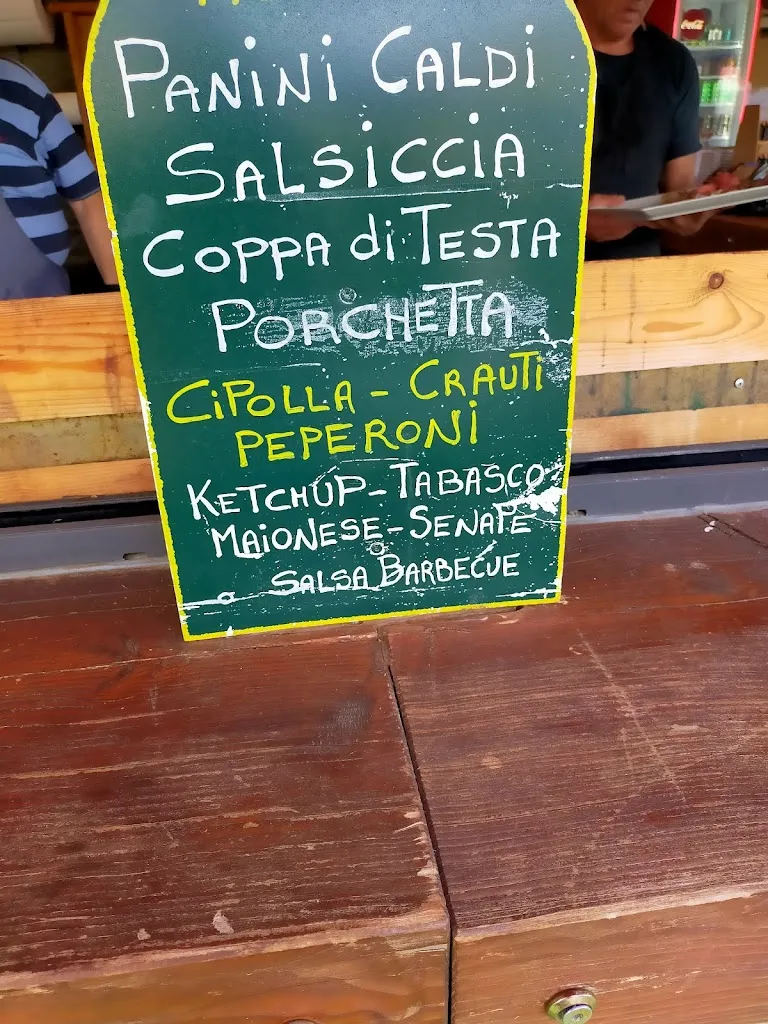 PANINI CALDI
SALSICCIA
COPPA di TESTA
PORCHETTA
CIPOLLA - CRAUTI
PEPERONI
KETCHUP - TABASCO
MAIONESE - SENAPE
SALSA BARBECUE
Coca-Cola